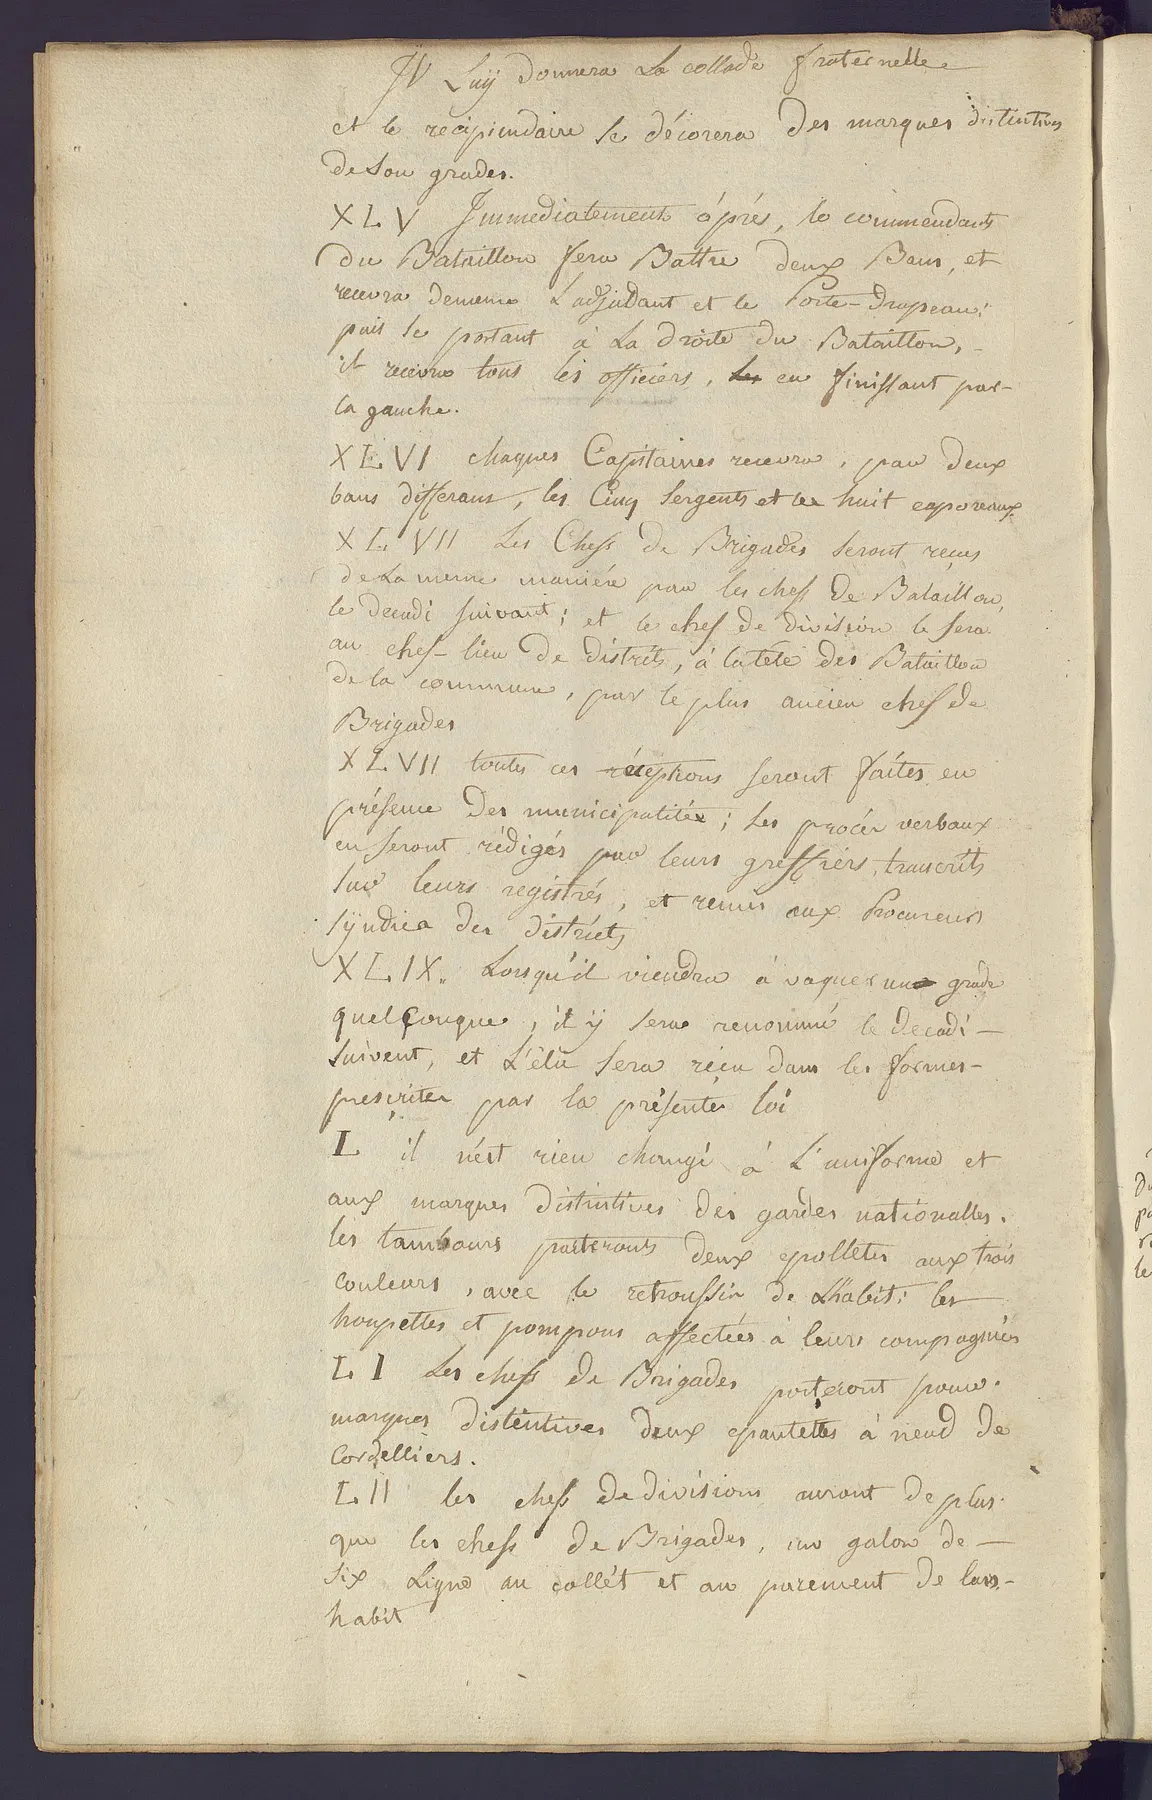 IV Luÿ donnera La collade fraternelle
et le récipiendaire se décorera Des marques distintives
de Son grades.
XLV Immediatement áprés, le commendants
du Bataillon fera Battre deux Bans, et
recevra dememe L'adjudant et le Porte-Drapeau;
puis se portant à La droite du Bataillon,
il recevra tous les officiers, Les en finissant par-
la gauche.
XLVI chaques Capitaines recevra, par deux
bans differans, les Cinq Sergents et les huit caporeaux
XLVII Les Chefs de Brigades seront reçus
de La meme maniére par les chefs De Bataillon,
le decadi suivant; et le chef de division le sera
au chef-lieu De distrits, á la tété des Bataillon
de la commune, par le plus ancien chef de
Brigades
XLVII toutes ces réceptions seront faites en
présence Des municipalitée; Les procés verbaux
en seront rédigés par leurs greffiérs, transcrits
sur leurs registrés, et remis aux Procureurs
syndics des districts
XLIX. Lorsqu'il viendra á vaquer un grade
quelçonque, il ÿ sera renommé le decadi-
suivent, et L'élu sera réçu dans les formes-
prescrites par la présente loi
L il n'ést rien changé á L'uniforme et
aux marques Distintives des gardes nationalles.
les tambours porterons deux epolletes aux trois
couleurs, avec le retroussin de L'habit; les
houpettes et pompons affectées à leurs compagniés
LI Les chefs de Brigades porteront pour
marques distintives deux epaulettes á neud de
Cordelliers.
LII les chefs de divisions auront de plus
que les chefs de Brigades, un galon de-
six Ligne au collét et au parement de leurs-
habit